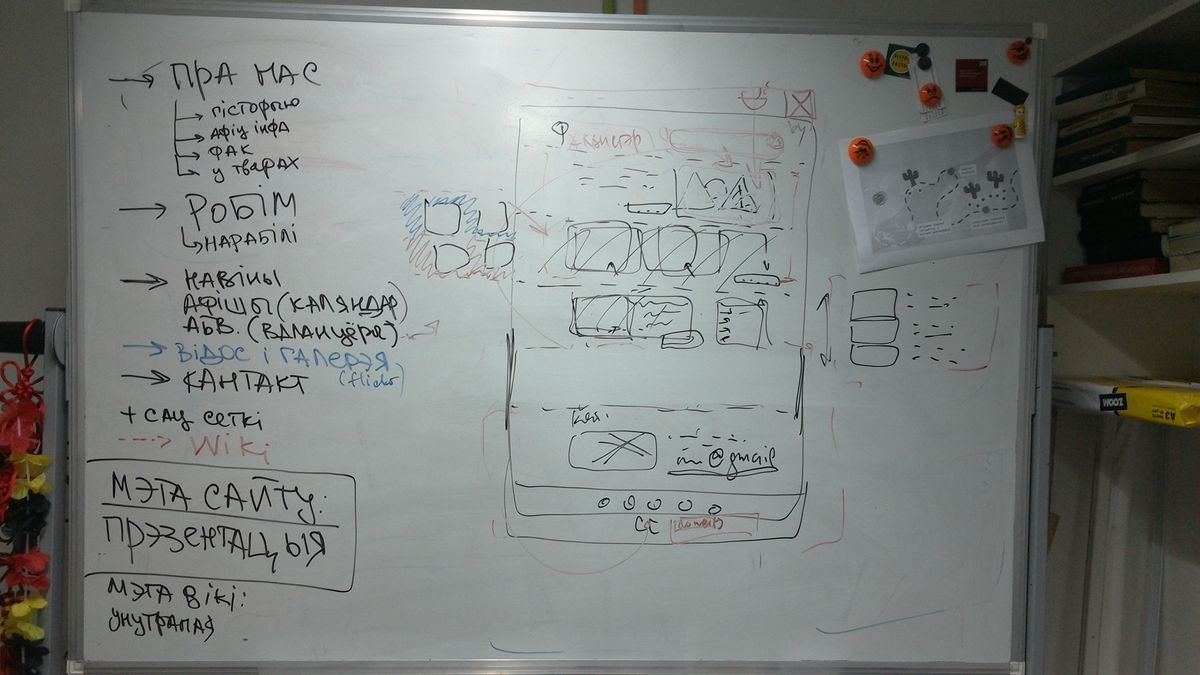 ПРА НАС
гісторыю
АФІЦ ІНФА
ФАК
у тварах
РОБІМ
НАРАБІЛІ
НАВІНЫ
АФІШЫ (КАЛЯНДАР)
АБВ. (ВАЛАНЦЁРЯ)
ВІДОС І ГАЛЕРЭЯ
(flickr)
КАНТАКТ
+ САЦ СЕТКІ
Wiki
МЭТА САЙТУ:
ПРЭЗЕНТАЦЫЯ
МЭТА ВІКІ:
УНУТРАНАЯ
by
@gmail
CC
ZOOM
A3